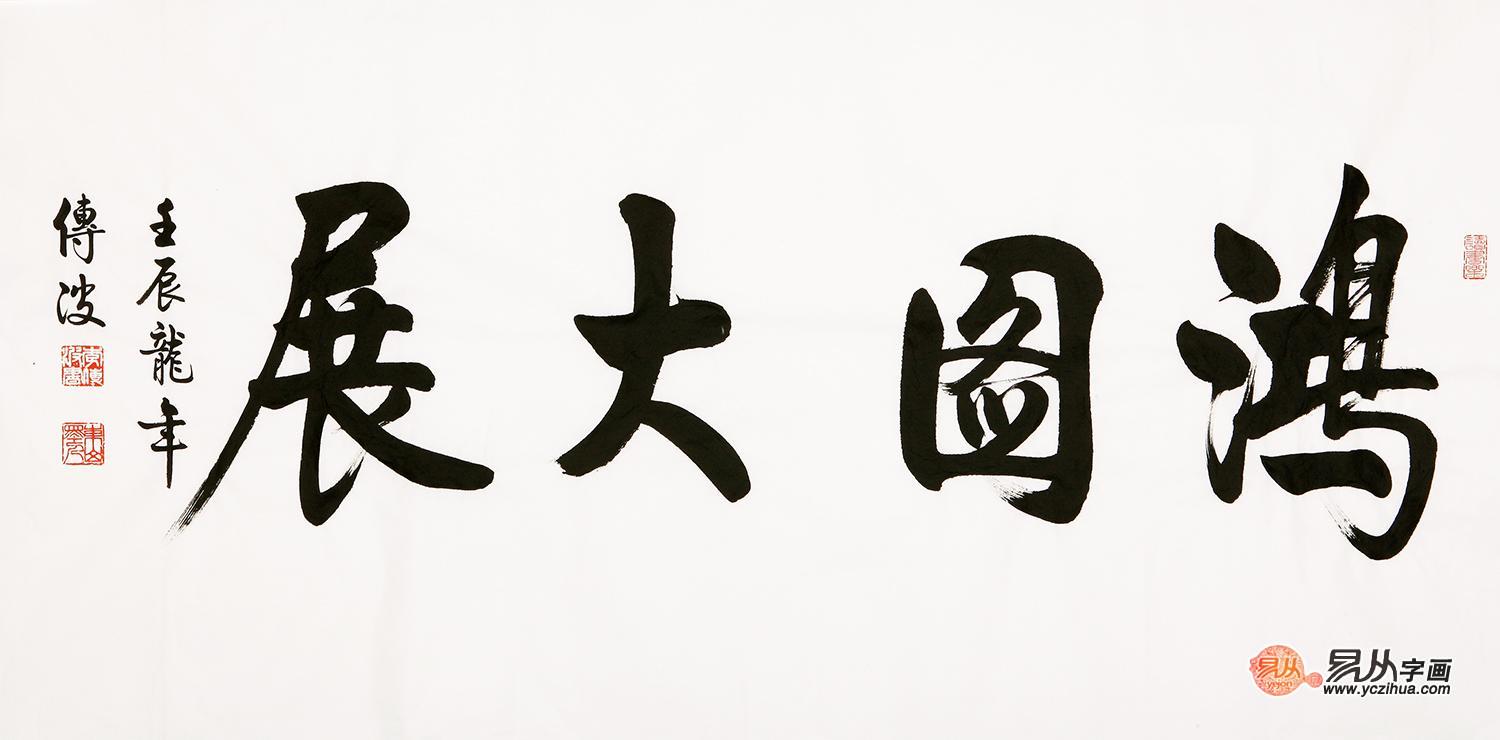 鴻圖大展
壬辰龍年
傳波
易从
yicon
易从字画
www.yczihua.com